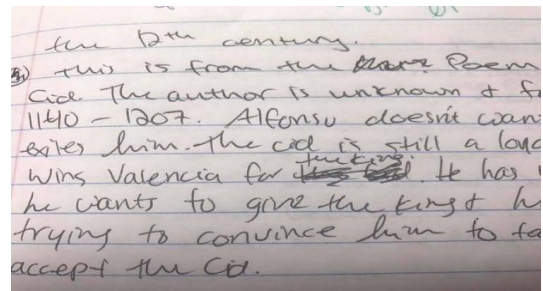 the 12th century.
this is from the Poem
Cid. The author is unknown &
1140 - 1207. Alfonso doesn't
exiles him. The cid is still a
Wins Valencia for the king. He has
he wants to give the king &
trying to convince him to
accept the Cid.